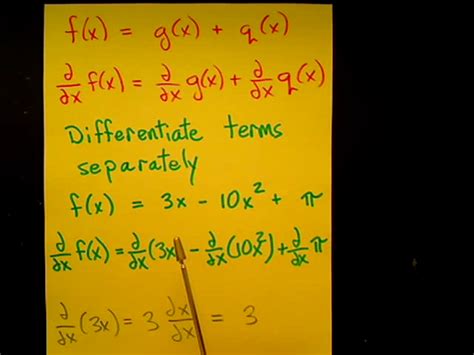 f(x) = g(x) + q(x)
∂/∂x f(x) = ∂/∂x g(x) + ∂/∂x q(x)
Differentiate terms
separately
f(x) = 3x - 10x² + π
∂/∂x f(x) = ∂/∂x (3x) - ∂/∂x (10x²) + ∂/∂x π
∂/∂x (3x) = 3 ∂x/∂x = 3